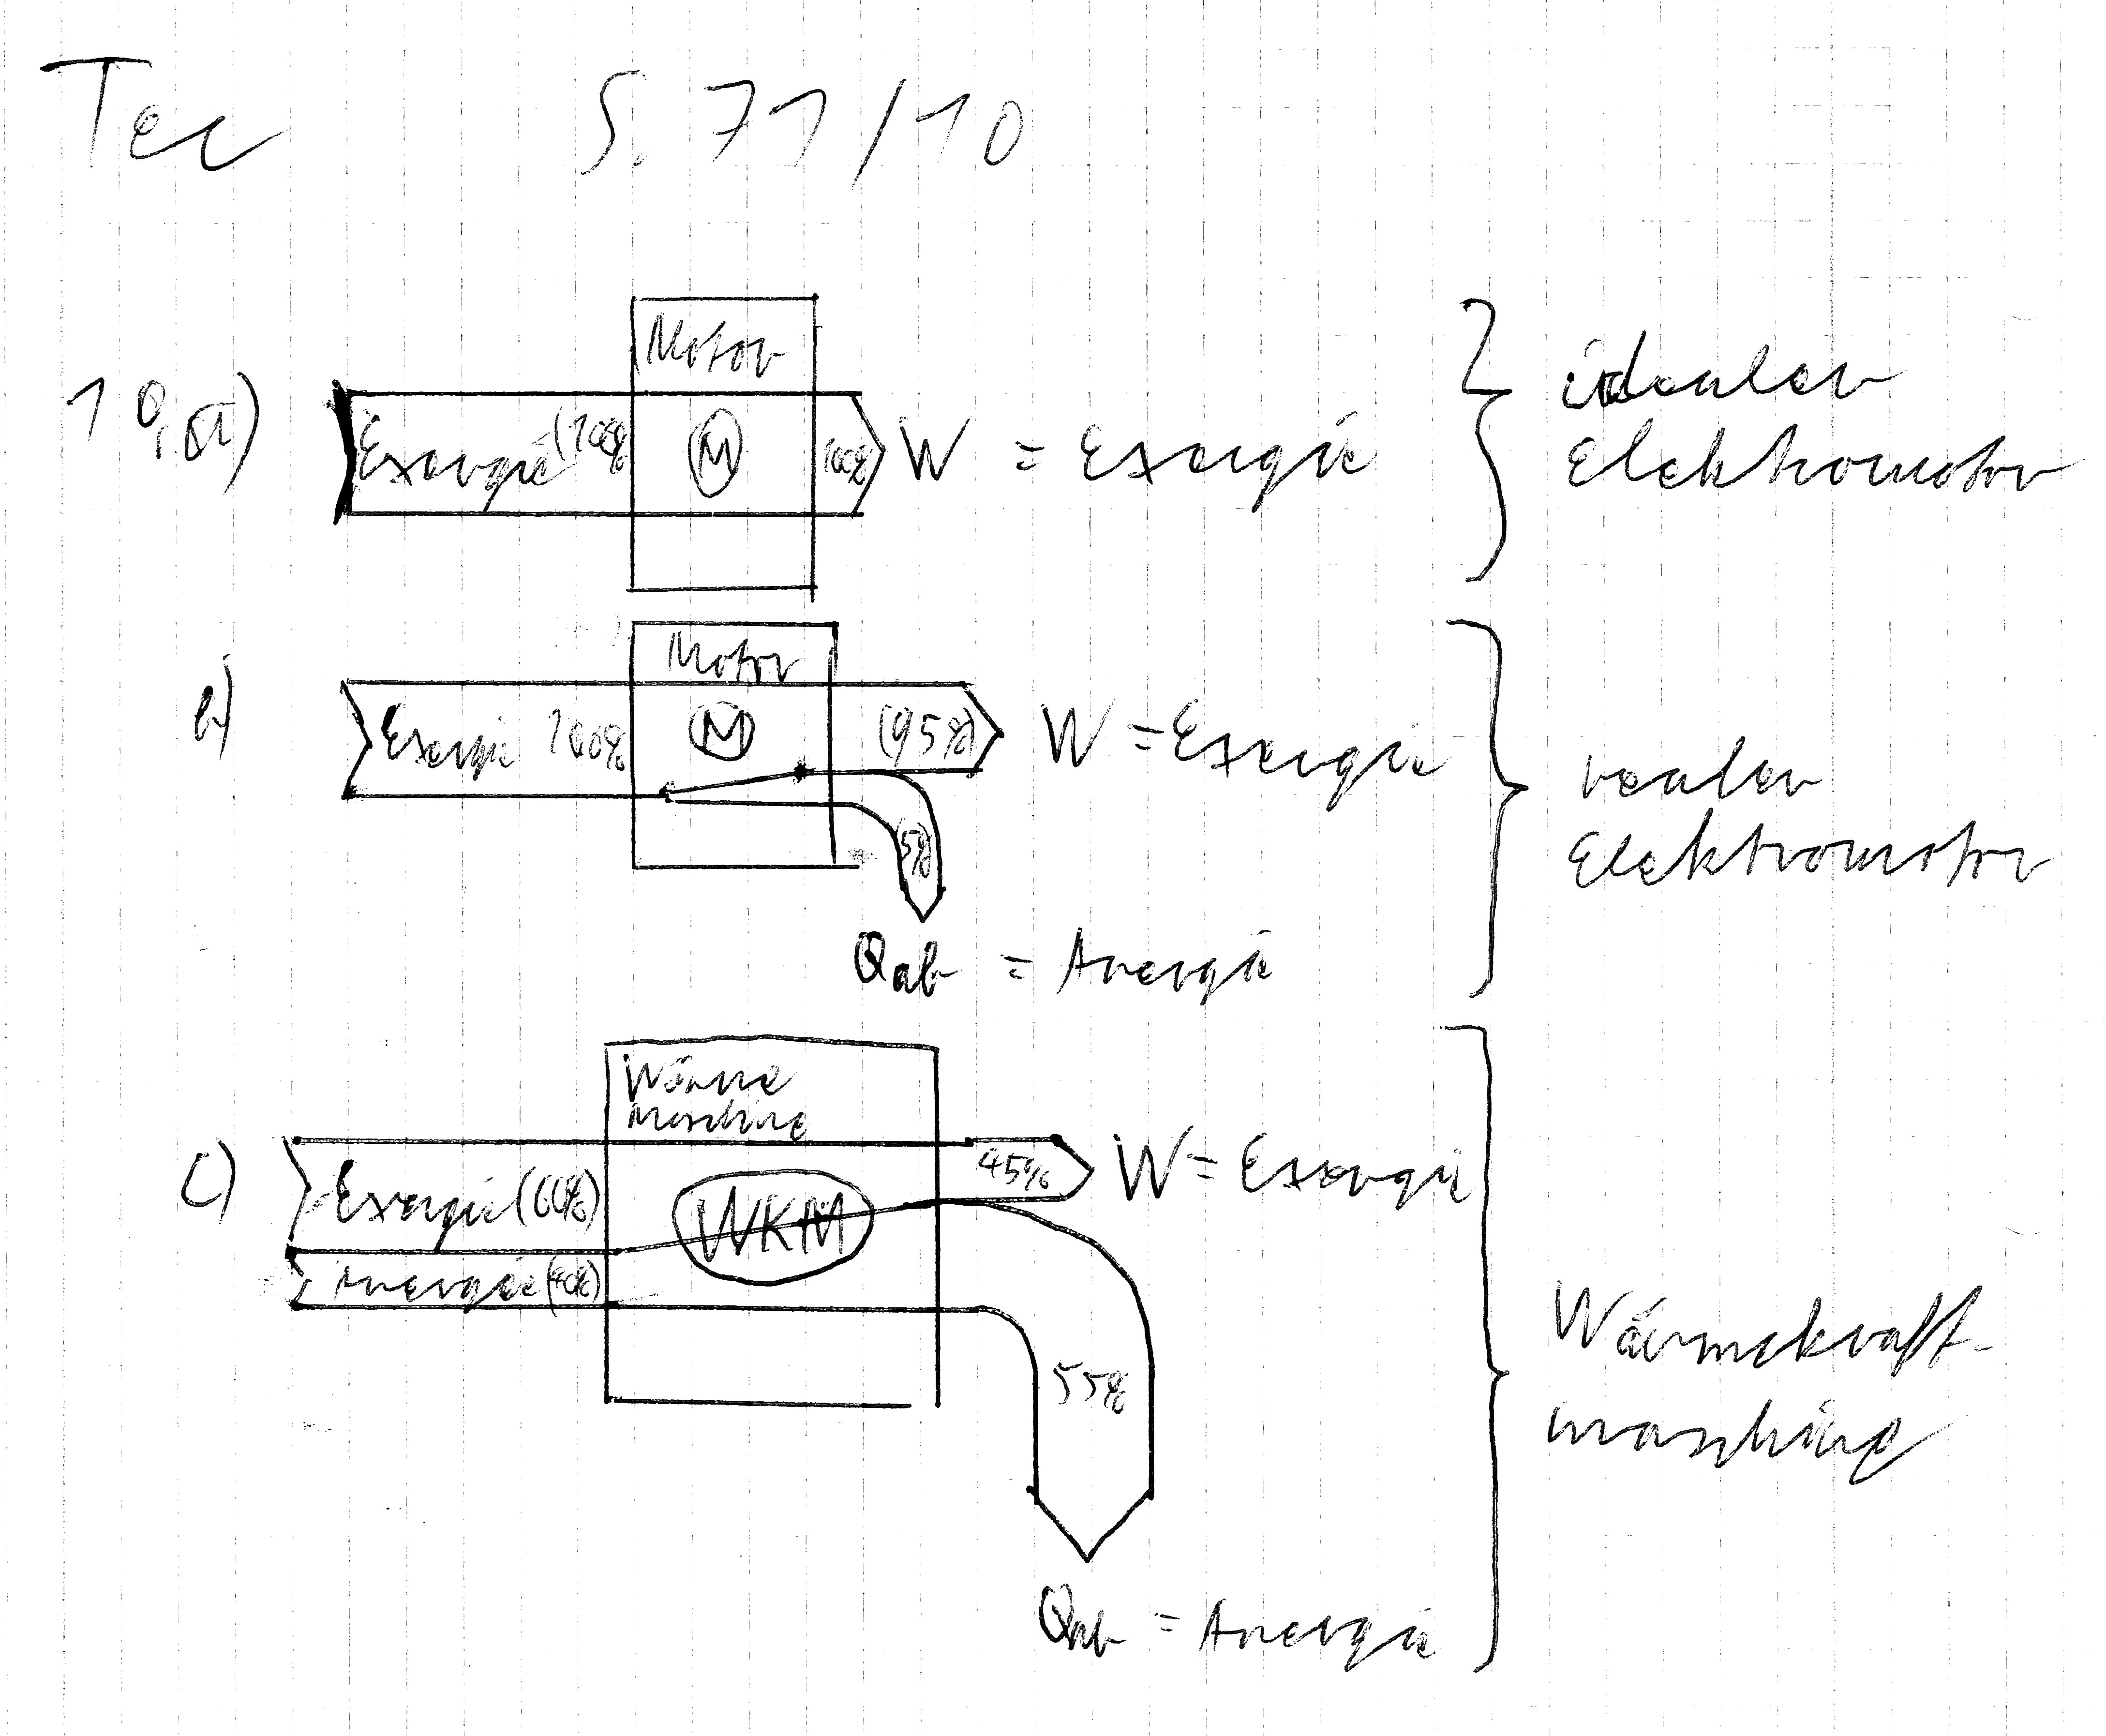 Tec S. 71/10
Motor
10,a) Exergie (100% M 100% W = Exergie idealer
Elektromotor
Motor
b) Exergie 100% M (95%) W = Exergie realer
Elektromotor
(5%)
Qab = Anergie
Wärme
maschine
c) Exergie (60%) WKM 45% W = Exergie
Anergie (40%)
Wärmekraft-
maschine
55%
Qab = Anergie